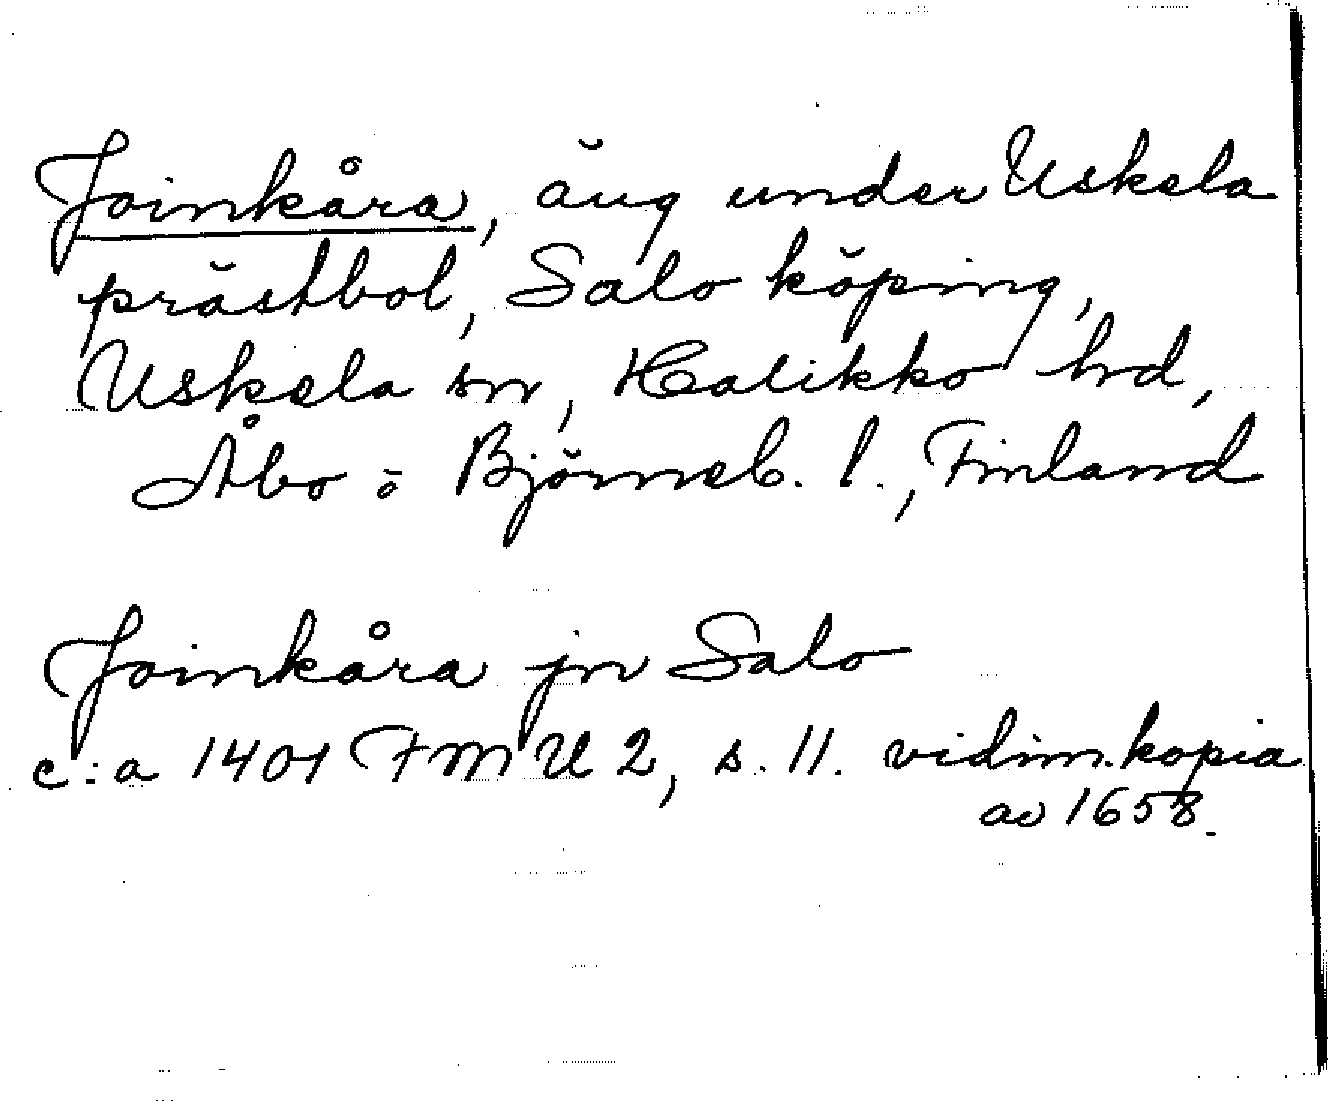 Joinkåra, äng under Uskela
prästbol, Salo köping,
Uskela sn, Halikko hrd,
Åbo o Björneb. l., Finland
Joinkåra jn Salo
c:a 1401 FMU 2, s. 11. vidim. kopia
av 1658.